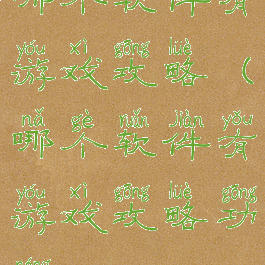 哪个软件有
yóu xì gōng lüè
游戏攻略（
nǎ gè ruǎn jiàn yǒu
哪个软件有
yóu xì gōng lüè gōng
游戏攻略功